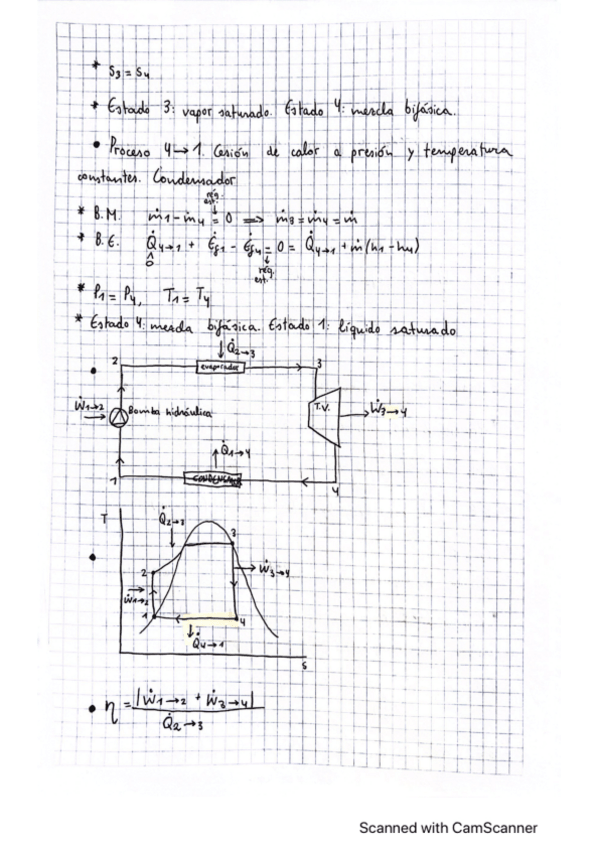 * S3 = S4
* Estado 3: vapor saturado. Estado 4: mezcla bifásica.
• Proceso 4→1. Cesión de calor a presión y temperatura
constantes. Condensador
rég. est.
* B.M. ṁ1 - ṁ4 = 0 ⟹ ṁ3 = ṁ4 = ṁ
* B.E. Q̇4→1 + Ėf1 - Ėf4 = 0 = Q̇4→1 + ṁ(h1 - h4)
^
0
rég.
est.
* P1 = P4, T1 = T4
* Estado 4: mezcla bifásica. Estado 1: líquido saturado
Q̇2→3
2 evaporador 3
Ẇ1→2 Bomba hidráulica T.V. Ẇ3→4
Q̇1→4
1 CONDENSADOR 4
T Q̇2→3
3
2 Ẇ3→4
Ẇ1→2
1 4
Q̇4→1
S
• η = |Ẇ1→2 + Ẇ3→4|
Q̇2→3
Scanned with CamScanner